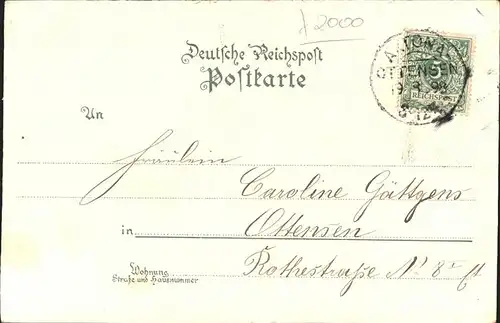 2000
Deutsche Reichspost
Postkarte
ALTONA
OTTENSEN
5
REICHSPOST
An
Fräulein
Caroline Göttgens
in Ottensen
Wohnung
Straße und Hausnummer
Rothestraße № 8